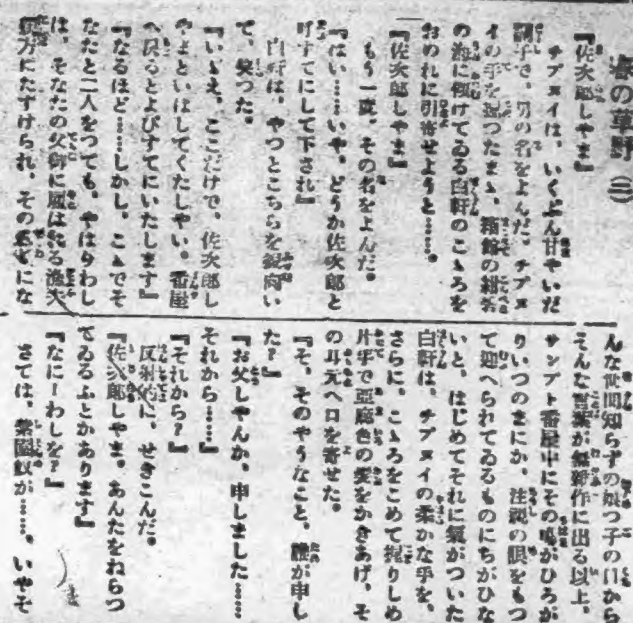 春の草野 (二)
『佐次郎しやま』
チプヌイは、いくぶん甘やいだ
調子で、男の名をよんだ。チプヌ
イの手を握つたまゝ、箱館の紺青
の海に傾けてゐる白軒のこゝろを
おのれに引寄せようと……。
『佐次郎しやま』
もう一度、その名をよんだ。
『はい……いや、どうか佐次郎と
呼すてにして下され』
白軒は、やつとこちらを振向い
て、笑つた。
『いゝえ、ここだけで、佐次郎し
やまといはしてくたしやい。番屋
へ戻るとよびすてにいたします』
『なるほど……しかし、こゝでそ
なたと二人をつても、やはりわし
は、そなたの父御に雇はれる漁夫
方にたすけられ、その
んな世間知らずの娘つ子の口から
そんな言葉が無雑作に出る以上、
サンプト番屋中にその噂がひろが
りいつのまにか、注視の眼をもつ
て迎へられてゐるものにちがひな
いと、はじめてそれに氣がついた
白軒は、チプヌイの柔かな手を、
さらに、こゝろをこめて握りしめ
片手で亜麻色の髪をかきあげ、そ
の耳元へ口を寄せた。
『そ、そのやうなこと、誰が申し
た?』
『お父しやんか、申しました……
それから……』
『それから?』
反射的に、せきこんだ。
『佐次郎しやま。あんたをねらつ
てゐるふとかあります』
『なにーわしを?』
さては、 が……、いやそ